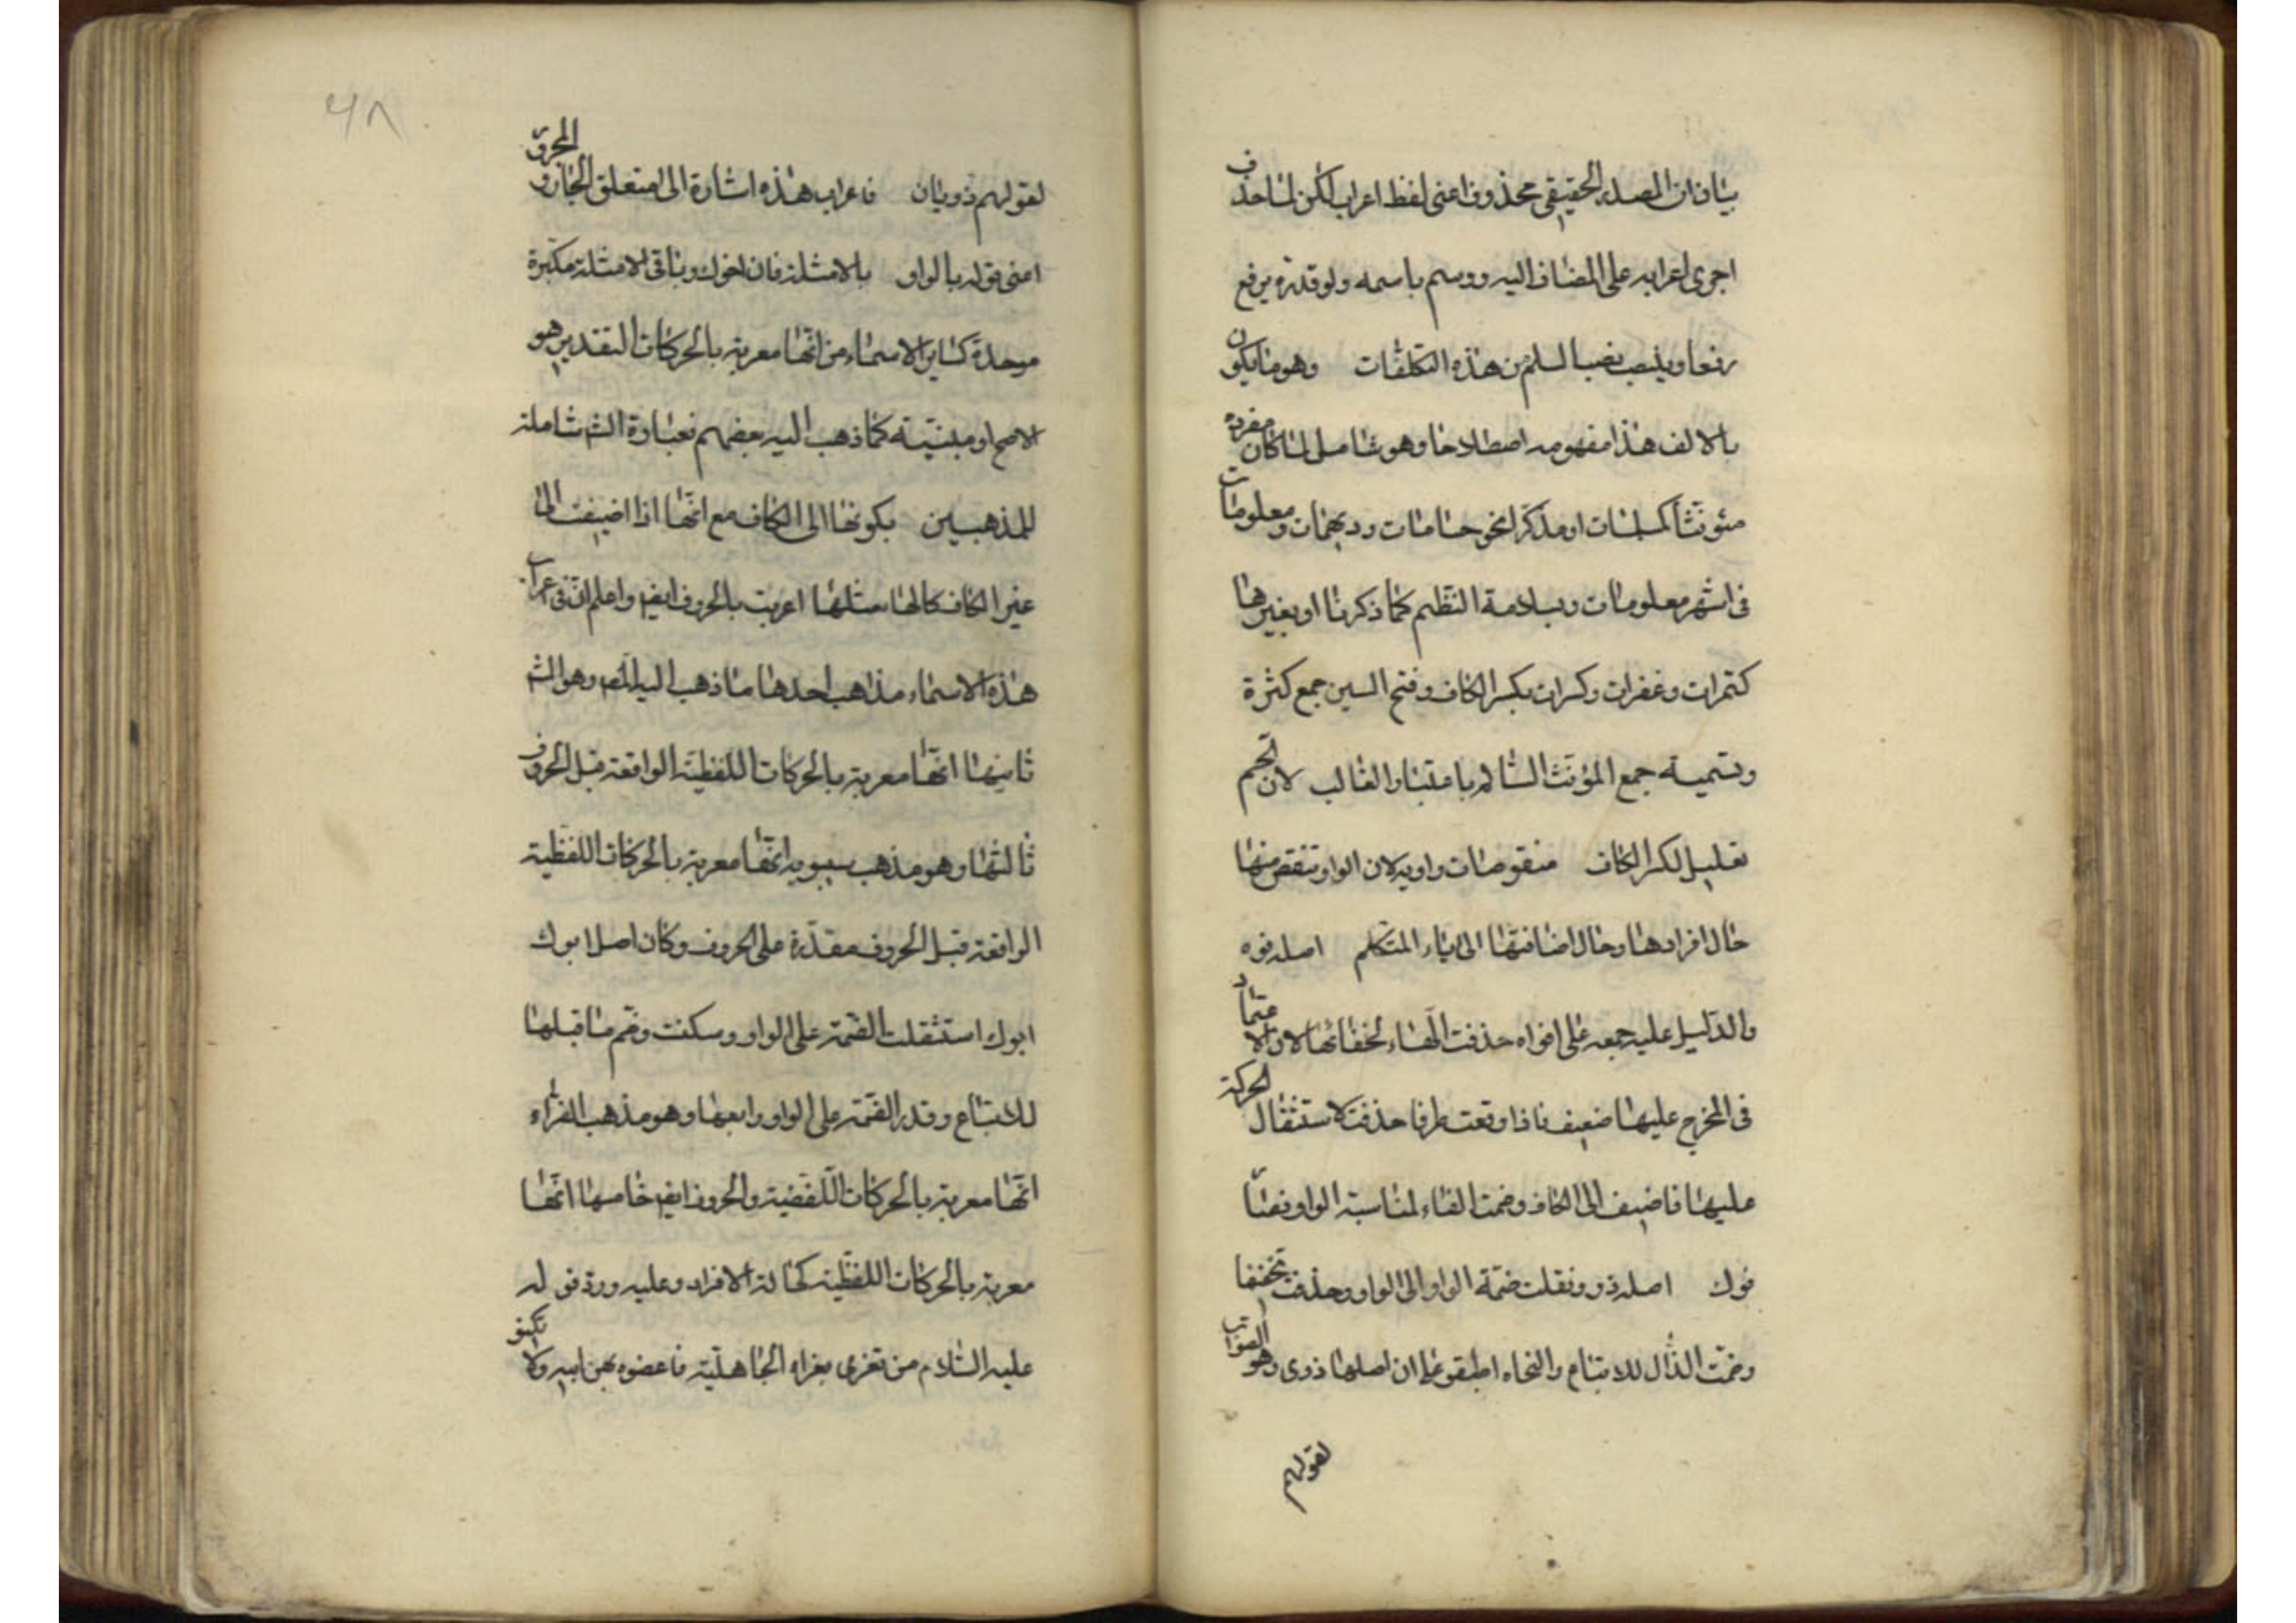 بيان ان المصدر الحقيقي محذوف اعنى لفظ اعراب لكن لما حذف
اجرى اعرابه على المضاف اليه ووسم باسمه ولو قدره يرفع
رفعا وينصب نصبا لسلم من هذه التكلفات وهو ما يكون
بالالف هذا مفهومه اصطلاحا وهو شامل لما كان مفرده
مئونثا كمسلمات او مذكرا نحو حمامات ودريهمات ومعلومات
فى اشهر معلومات وبسلامة النظم كما ذكرنا او بغيرها
كتمرات وغفرات وكسرات بكسر الكاف وفتح السين جمع كثرة
وتسميته جمع المؤنث السالم باعتبار الغالب لان
تعليل لكسر الكاف منقوصات واويه لان الواو تنقص منها
حال افرادها وحال اضافتها الى ياء المتكلم اصله فوه
والدليل عليه جمعه على افواه حذفت الهاء لخفائها لان الاعتماد
فى المخرج عليها ضعيف فاذا وقعت طرفا حذفت لاستثقال الحركة
عليها فاضيف الى الكاف وضمت الفاء لمناسبة الواو فصار
فوك اصله ذوو نقلت ضمة الواو الى الواو وحذفت تخفيفا
وضمت الذال للاتباع والنحاه اطبقو على ان اصلها ذوى وهو الصواب
لقولهم
٤٨
لقولهم ذويان فاعراب هذه اشارة الى متعلق الجار والمجرور
اعنى قوله بالواو بالامثلة فان اخوك وباقى الامثلة مكبرة
موحدة كساير الاسماء من انها معربة بالحركات التقديرهو
الاصح او مبنية كما ذهب اليه بعضهم فعبارة الش شاملة
للمذهبين بكونها الى الكاف مع انها اذا اضيفت الى
غير الكاف كالها مثلها اعربت بالحروف ايض واعلم ان فى اعراب
هذه الاسماء مذاهب احدها ما ذهب اليه المص وهو الش
ثانيها انها معربة بالحركات اللفظية الواقعة قبل الحروف
ثالثها وهو مذهب سيبويه انها معربة بالحركات اللفظية
الواقعة قبل الحروف مقدرة على الحروف وكان اصل ابوك
ابوك استثقلت الضمة على الواو وسكنت وضم ما قبلها
للاتباع وقدر الضمة على الواو رابعها وهو مذهب الفراء
انها معربة بالحركات اللفضية والحروف ايض خامسها انها
معربة بالحركات اللفظية كحالة الافراد وعليه ورد قوله
عليه السلام من تعزى بعزاء الجاهلية فاعضوه بهن ابيه ولا تكنو